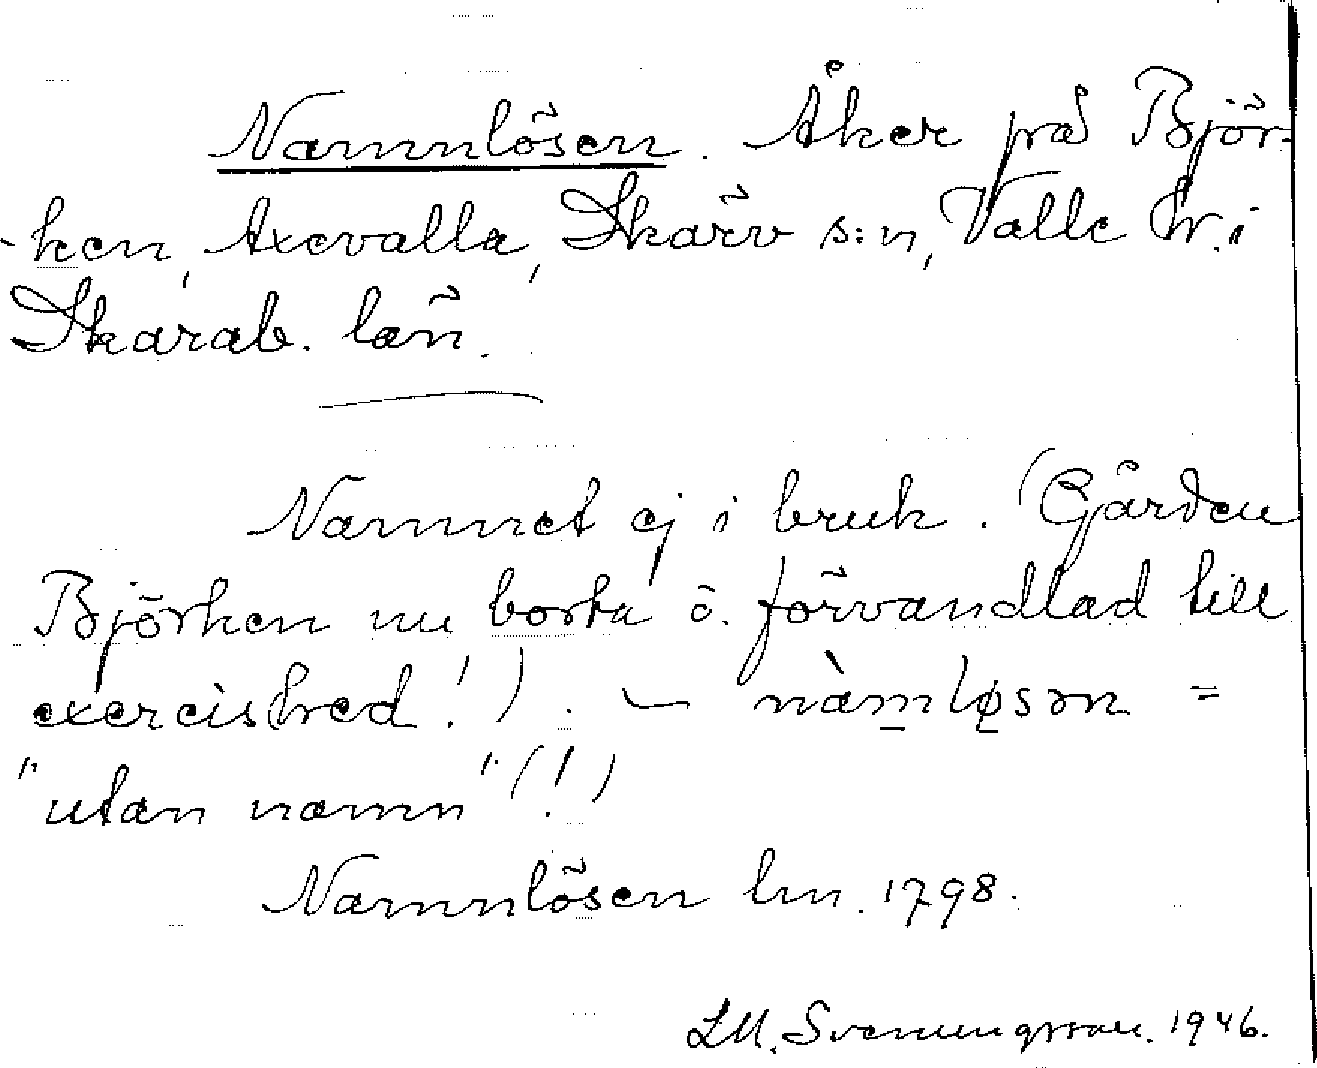 Namnlösen. Åker på Björ-
-ken, Axevalla, Skärv s:n, Valle hr. i
Skarab. län.
Namnet ej i bruk. (Gården
Björken nu borta o. förvandlad till
exercished!). — nàmløsən =
"utan namn" (!)
Namnlösen lm. 1798.
LM. Svenungsson. 1946.